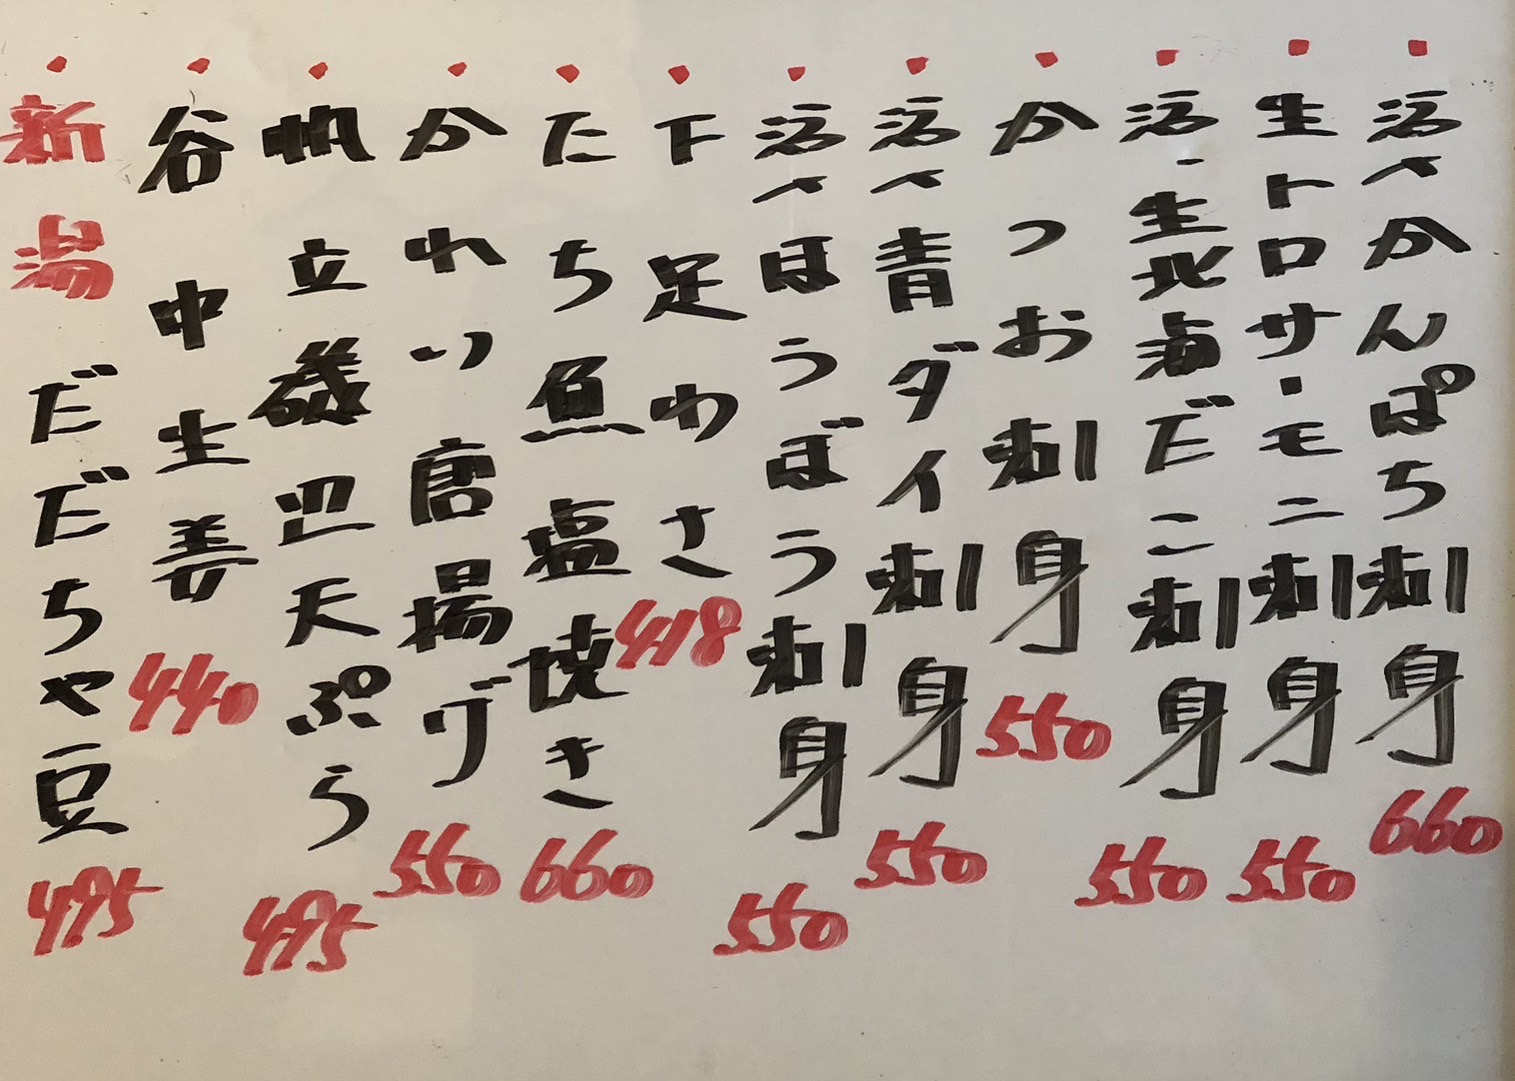 活〆かんぱち刺身 660
生トロサーモン刺身 550
活・生北海だこ刺身 550
かつお刺身 550
活〆青ダイ刺身 550
活〆ほうぼう刺身 550
下足わさ 418
たち魚塩焼き 660
かれい唐揚げ 550
帆立磯辺天ぷら 495
谷中生姜 440
新潟だだちゃ豆 495